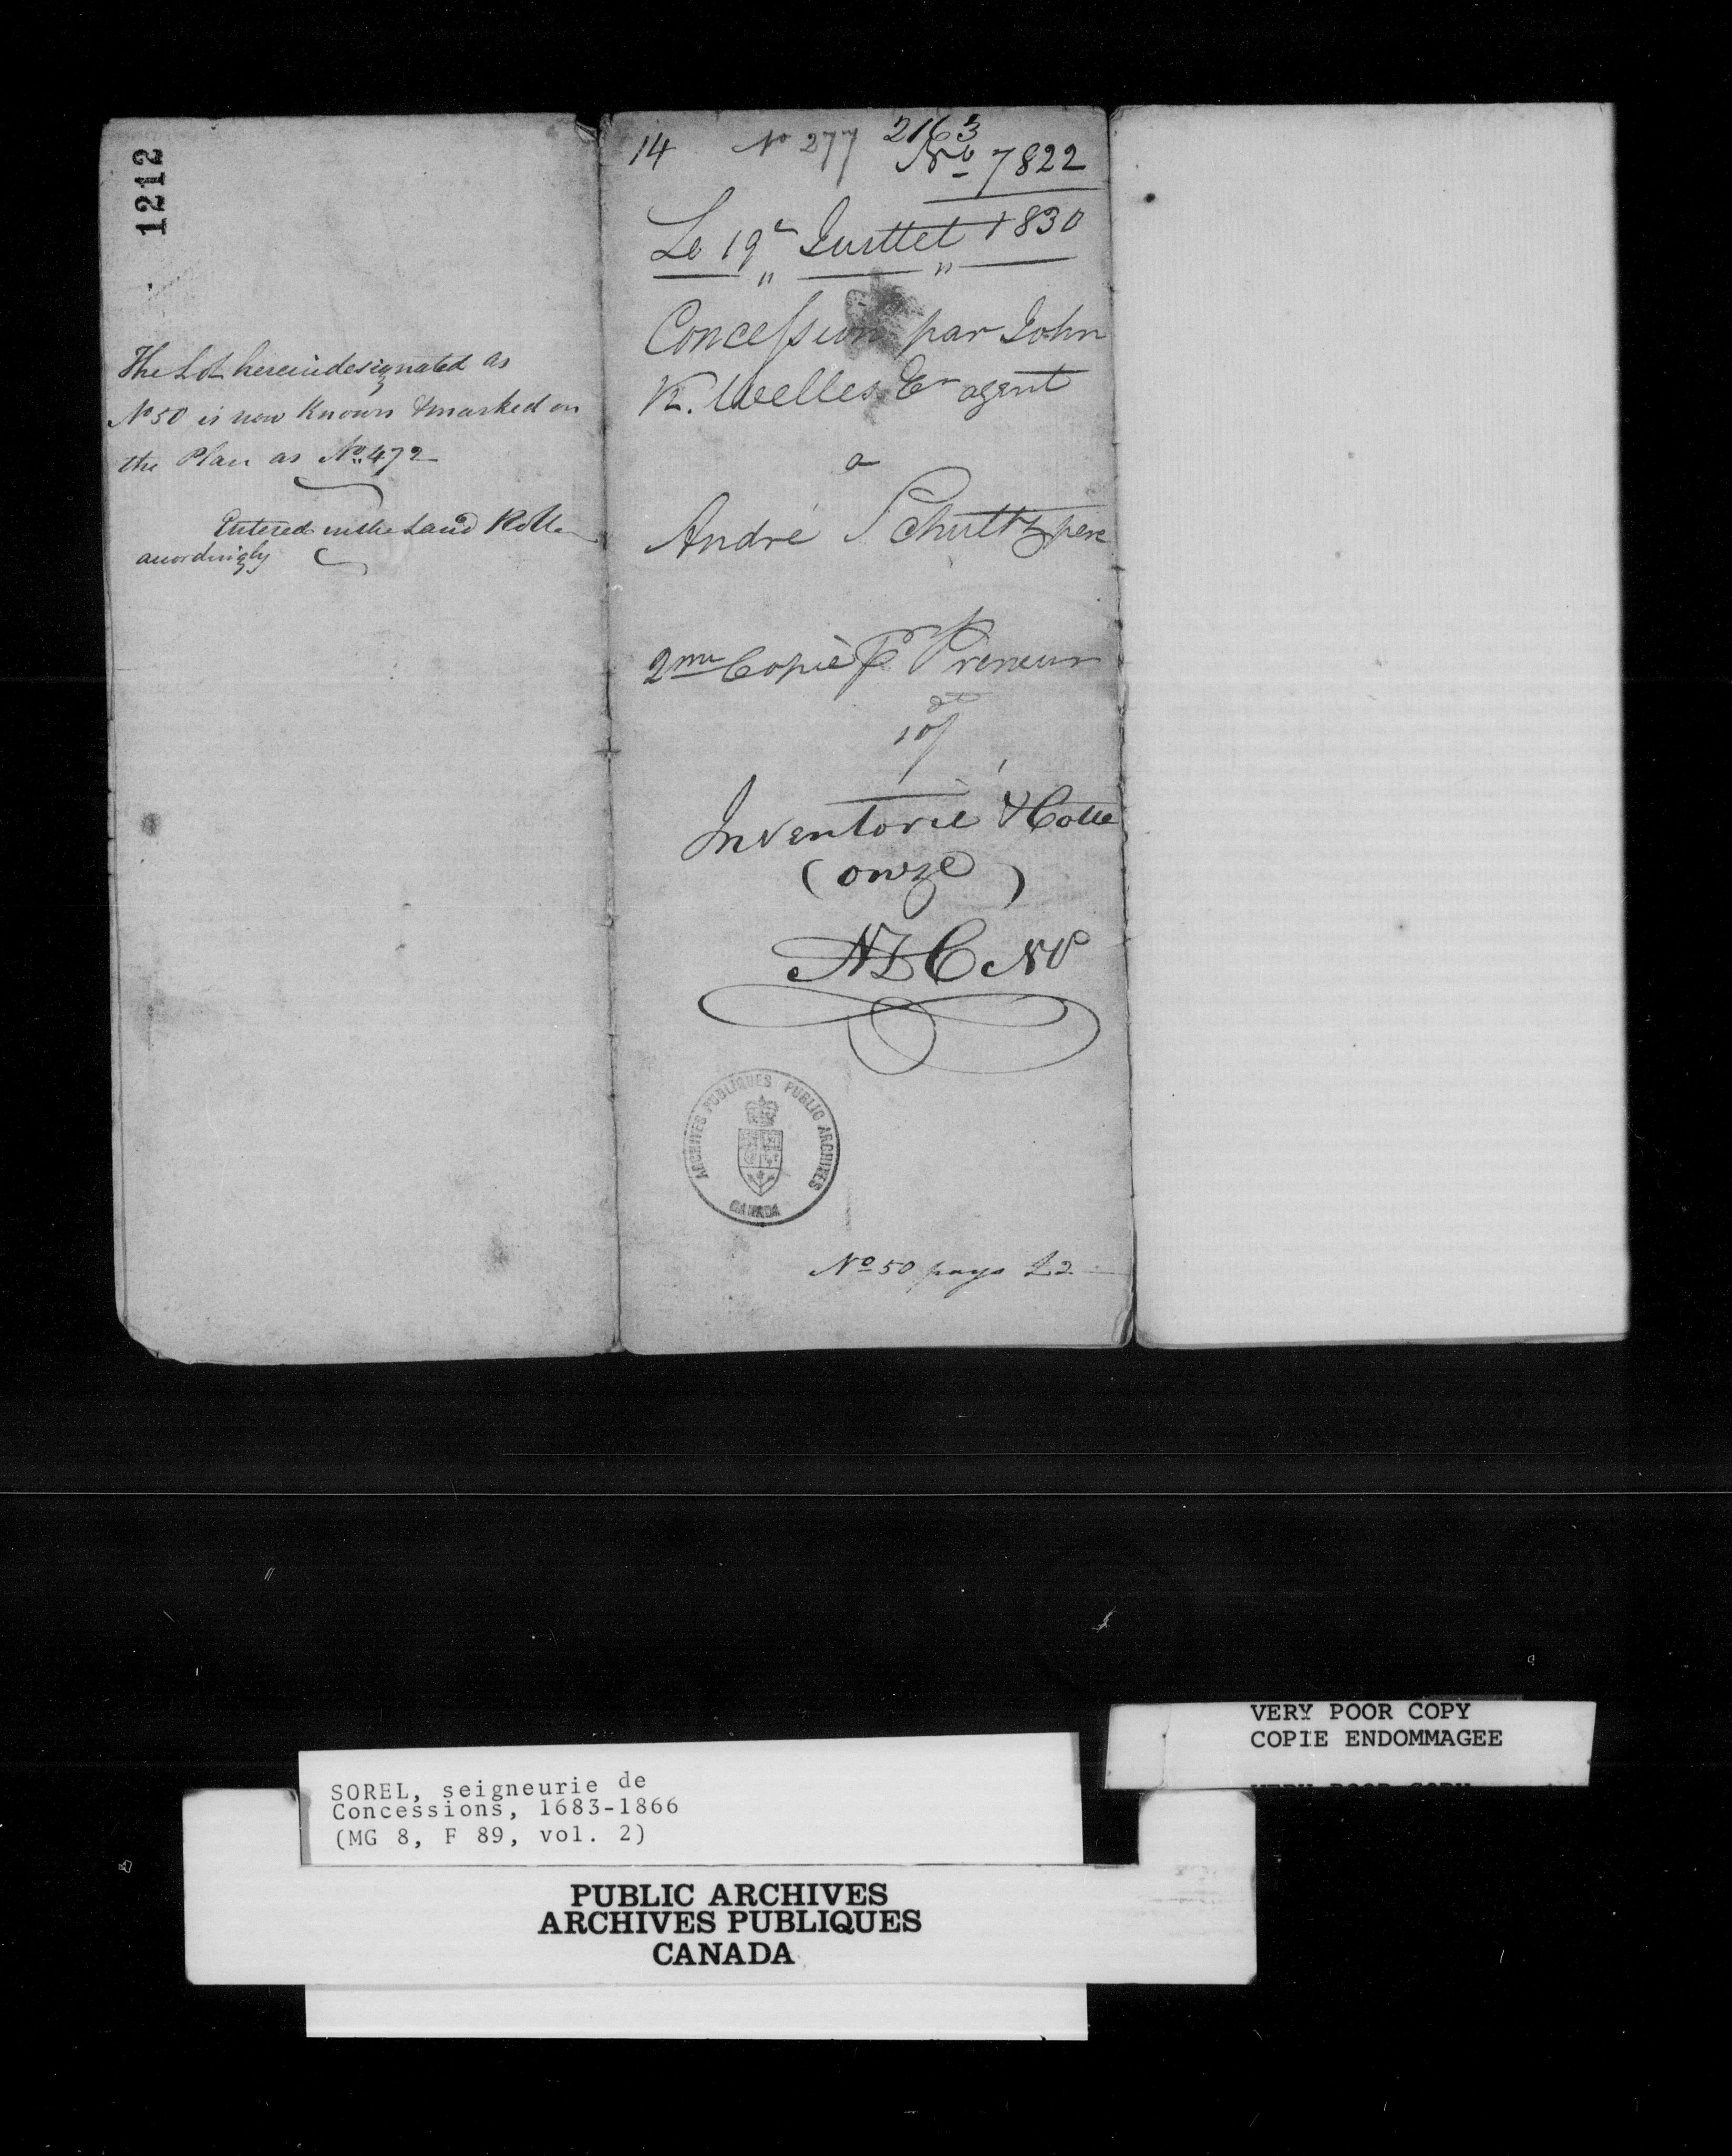 1212
The Lot herein designated as
No 50 is now Known & marked on
the Plan as No. 472
Entered in the Land Rolle
accordingly
14 No 277 2163
No 7822
Le 19e Juillet 1830
Concession par John
K. Welles Er agent
a
André Schultz pere
2me Copie Pr Preneur
10/
Inventorié & Cotté
(onze)
No 50 pays £2
ARCHIVES PUBLIQUES PUBLIC ARCHIVES
CANADA
VERY POOR COPY
COPIE ENDOMMAGEE
VERY POOR COPY
SOREL, seigneurie de
Concessions, 1683-1866
(MG 8, F 89, vol. 2)
PUBLIC ARCHIVES
ARCHIVES PUBLIQUES
CANADA